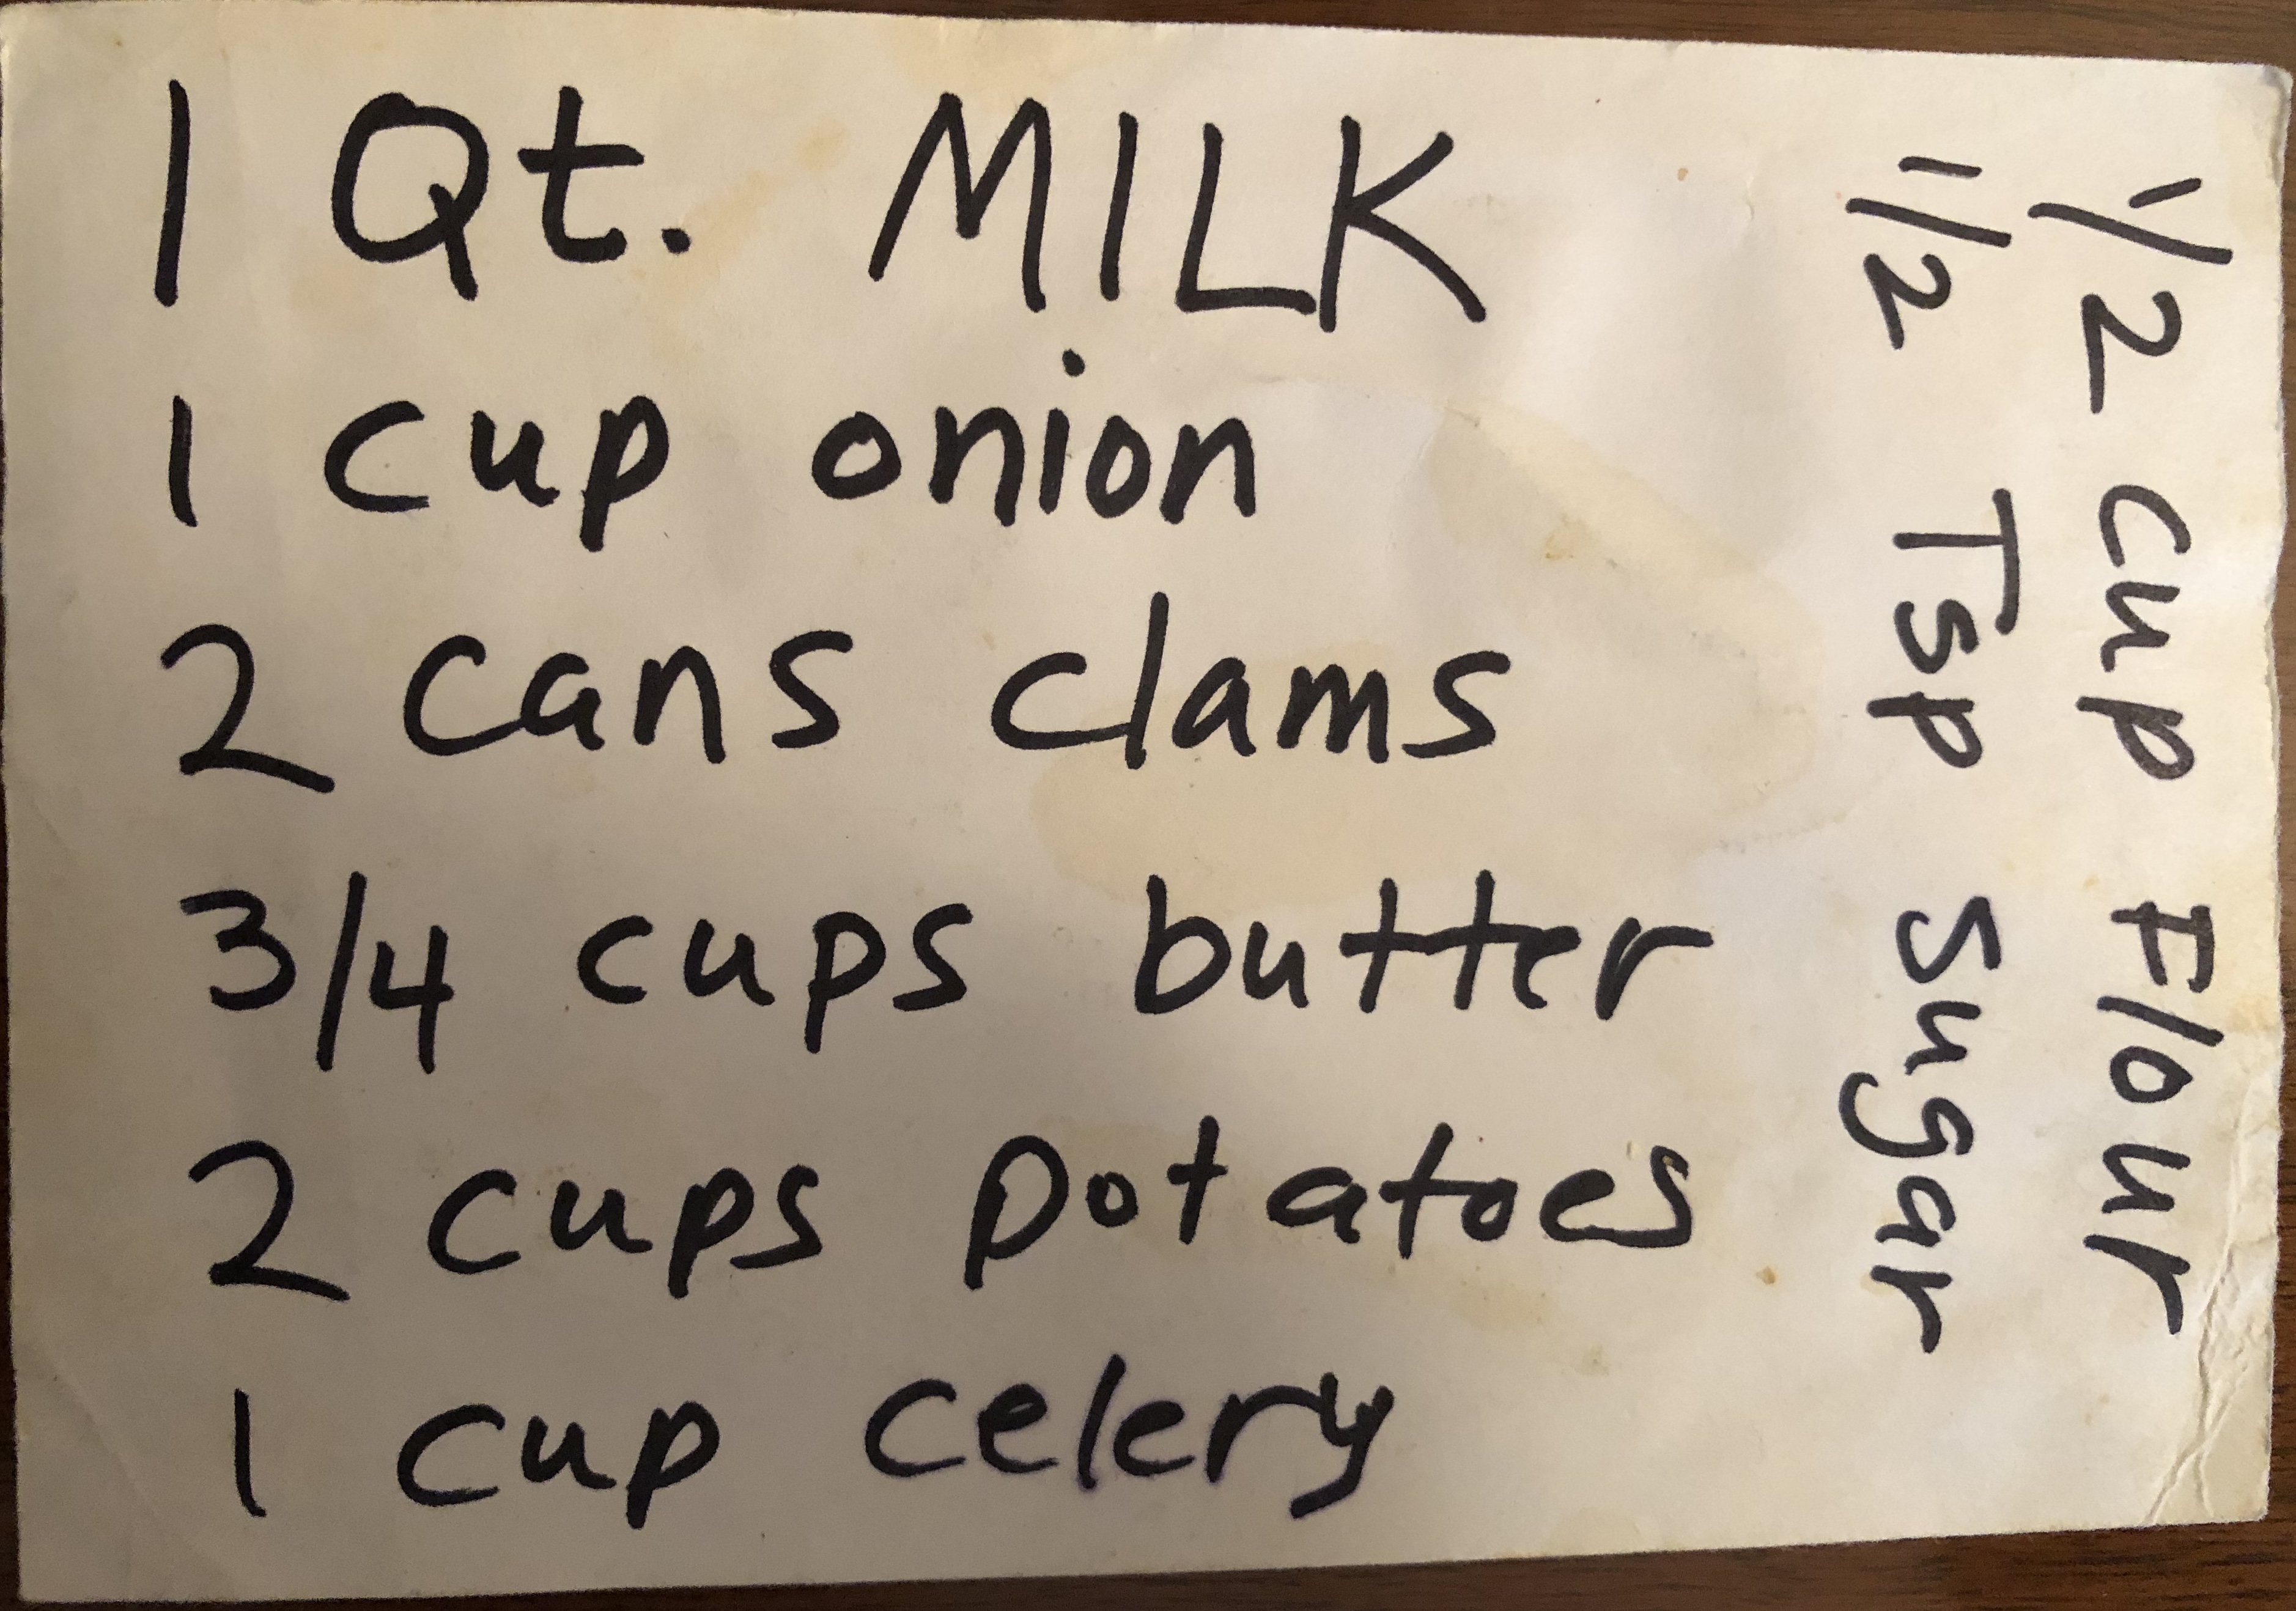 1 Qt. MILK
1 cup onion
2 cans clams
3/4 cups butter
2 cups potatoes
1 cup celery
1/2 cup Flour
1/2 Tsp Sugar